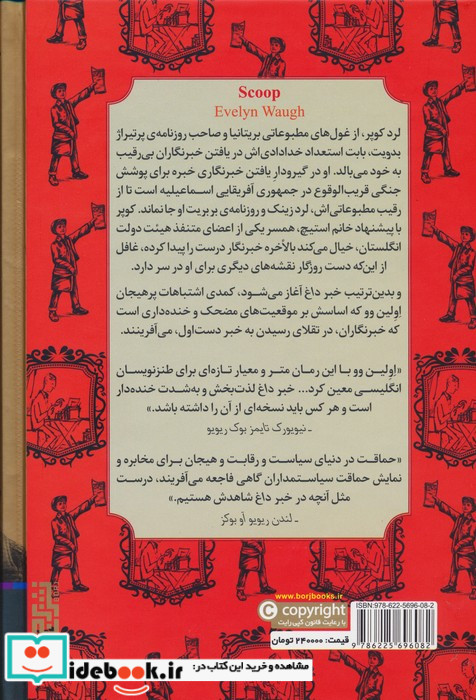 Scoop
Evelyn Waugh
لرد کوپر، از غول‌های مطبوعاتی بریتانیا و صاحب روزنامه‌ی پرتیراژ
بدویت، بابت استعداد خدادادی‌اش در یافتن خبرنگاران بی‌رقیب
به خود می‌بالد. او در گیرودارِ یافتن خبرنگاری خبره برای پوشش
جنگی قریب‌الوقوع در جمهوری آفریقایی اسماعیلیه است تا از
رقیب مطبوعاتی‌اش، لرد زینک و روزنامه‌ی بربریت او جا نماند. کوپر
با پیشنهاد خانم استیچ، همسر یکی از اعضای متنفذ هیئت دولت
انگلستان، خیال می‌کند بالأخره خبرنگار درست را پیدا کرده، غافل
از این‌که دست روزگار نقشه‌های دیگری برای او در سر دارد.
و بدین‌ترتیب خبر داغ آغاز می‌شود، کمدی اشتباهات پرهیجان
اِولین وو که اساسش بر موقعیت‌های مضحک و خنده‌داری است
که خبرنگاران، در تقلای رسیدن به خبر دست‌اول، می‌آفرینند.
«اِولین وو با این رمان متر و معیار تازه‌ای برای طنزنویسان
انگلیسی معین کرد... خبر داغ لذت‌بخش و به‌شدت خنده‌دار
است و هر کس باید نسخه‌ای از آن را داشته باشد.»
ـ نیویورک تایمز بوک ریویو
«حماقت در دنیای سیاست و رقابت و هیجان برای مخابره و
نمایش حماقت سیاستمداران گاهی فاجعه می‌آفریند، درست
مثل آنچه در خبر داغ شاهدش هستیم.»
ـ لندن ریویو آو بوکز
www.borjbooks.ir
© copyright
با رعایت قانون کپی‌رایت
قیمت: ۲۴۰۰۰۰ تومان
ISBN: 978-622-5696-08-2
9 786225 696082
idebook.ir
مشاهده و خرید این کتاب در: